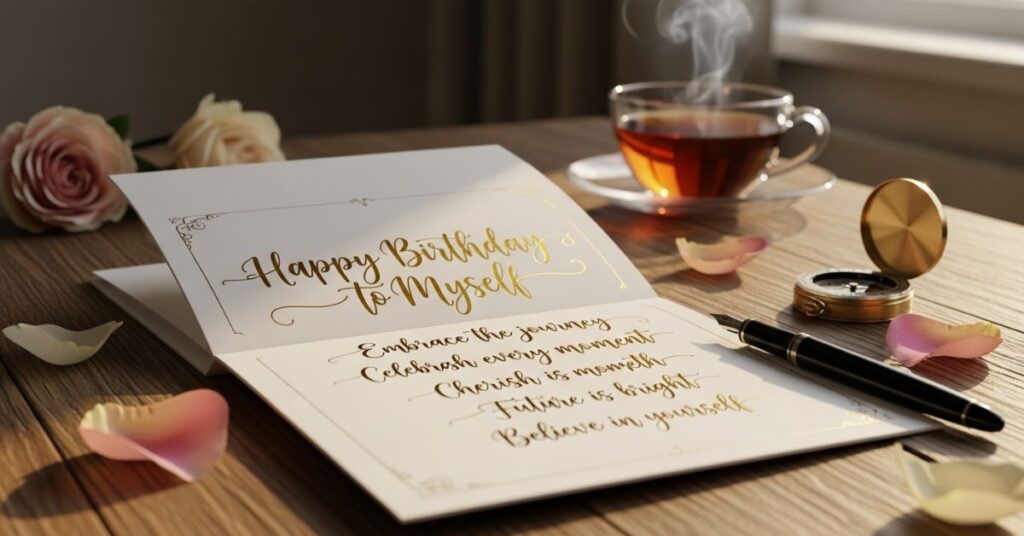 Happy Birthday
to Myself
Embrace the journey
Celebrosh every moment
Cherish is mometh
Future is bright
Believe in yourself